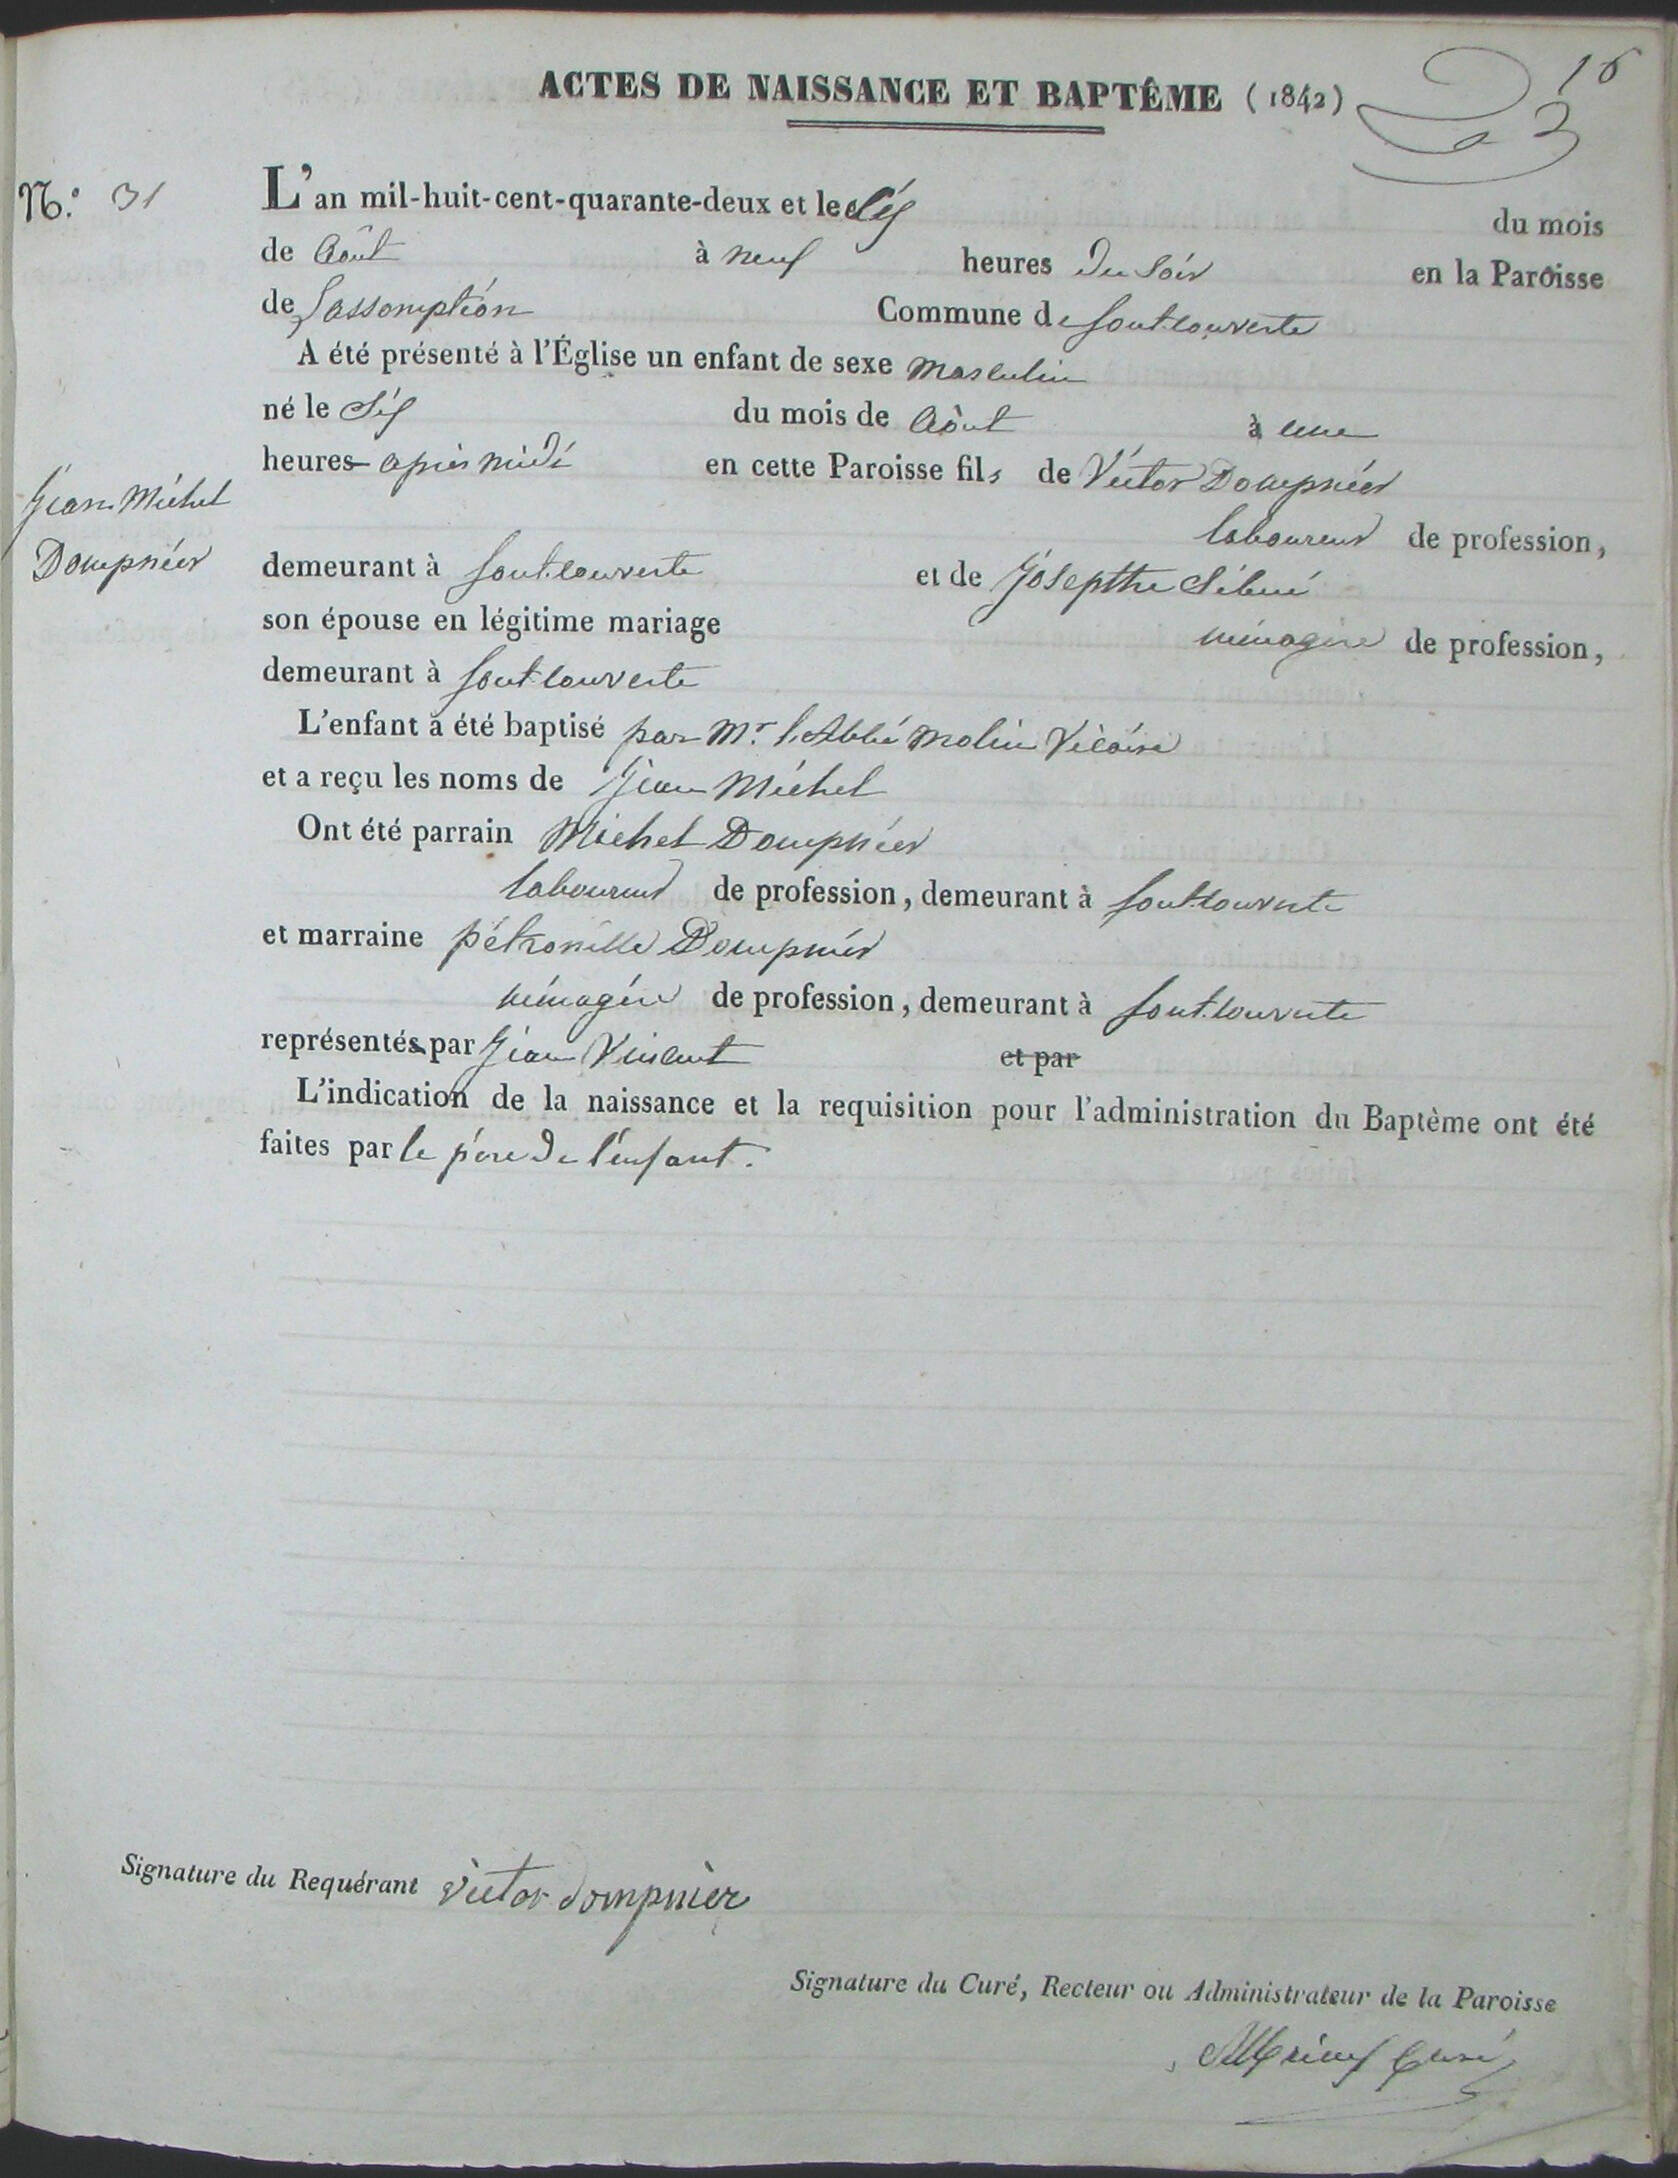 ACTES DE NAISSANCE ET BAPTÊME (1842)
16
N.° 31
L'an mil-huit-cent-quarante-deux et le dix du mois
de Août à neuf heures du soir en la Paroisse
de Lassomption Commune de fontcouverte
A été présenté à l'Église un enfant de sexe masculin
né le dix du mois de Août à une
heures après midi en cette Paroisse fils de Victor Dompnier
laboureur de profession,
Jean Michel
Dompnier
demeurant à fontcouverte et de Josepthe
son épouse en légitime mariage ménagère de profession,
demeurant à fontcouverte
L'enfant a été baptisé par Mr. l'Abbé Molin Vicaire
et a reçu les noms de Jean Michel
Ont été parrain Michel Dompnier
laboureur de profession, demeurant à fontcouverte
et marraine pétronille Dompnier
ménagère de profession, demeurant à fontcouverte
représentés par Jean Vincent et par
L'indication de la naissance et la requisition pour l'administration du Baptème ont été
faites par le père de l'enfant.
Signature du Requérant victor dompnier
Signature du Curé, Recteur ou Administrateur de la Paroisse
Curé